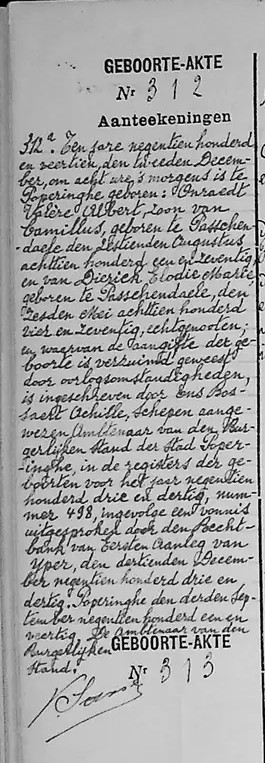 GEBOORTE-AKTE
Nr 312
Aanteekeningen
312a. Ten jare negentien honderd
en veertien, den tweeden Decem-
ber, om acht ure 's morgens is te
Poperinghe geboren: Onraedt
Valère Albert, zoon van
Camillus, geboren te Passchen-
daele den zestienden Augustus
achttien honderd een en zeventig,
en van Dierick Elodie Marie,
geboren te Passchendaele, den
zesden Mei achttien honderd
vier en zeventig, echtgenooten;
en waarvan de aangifte der ge-
boorte is verzuimd geweest
door oorlogsomstandigheden,
is ingeschreven door Ons Bos-
saert Achille, Schepen aange-
wezen Ambtenaar van den Bur-
gerlijken Stand der Stad Poper-
inghe, in de registers der ge-
boorten voor het jaar negentien
honderd drie en dertig, num-
mer 498, ingevolge een vonnis
uitgesproken door den Recht-
bank van Eersten Aanleg van
Yper, den dertienden Decem-
ber negentien honderd drie en
dertig. Poperinghe den derden Sep-
tember negentien honderd een en
veertig. De Ambtenaar van den
Burgerlijken
Stand.
GEBOORTE-AKTE
Nr 313